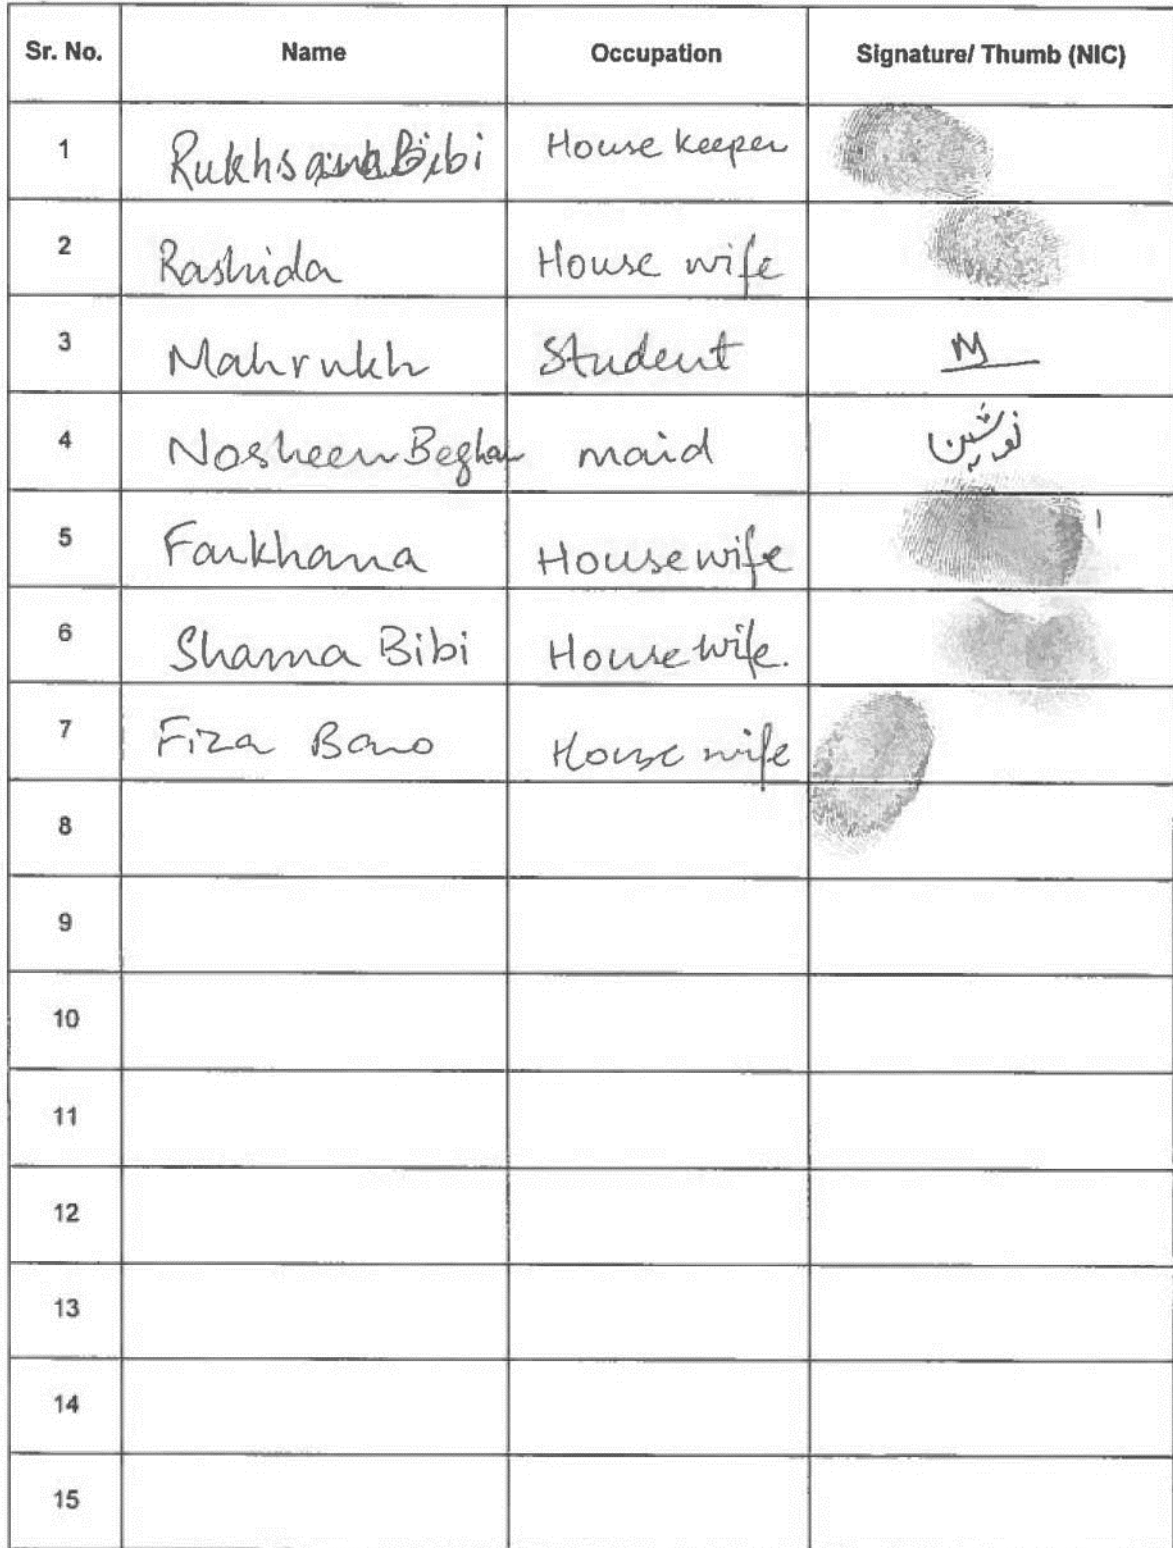 Sr. No. Name Occupation Signature/ Thumb (NIC)
1 Rukhsana Bibi House keeper
2 Rashida House wife
3 Mahrukh Student M
4 Nosheen Begham maid نوشین
5 Farkhana Housewife
6 Shama Bibi Housewife.
7 Fiza Bano House wife
8
9
10
11
12
13
14
15